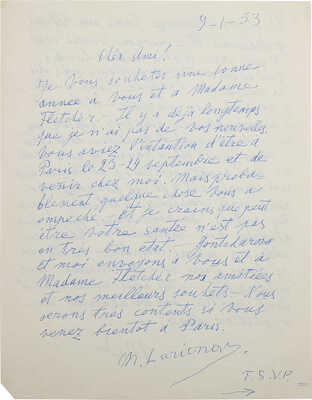 9-1-53
Cher Ami!
Je Vous souhetes une bonne
année a Vous et a Madame
Fletcher. Il y a déjà longtemps
que je n'ai pas de vos nouvelles.
Vous aviez l'intention d'être a
Paris le 23-24 septembre et de
venir chez moi. Mais proba
blement quelque chose vous a
empeché. Et je crains que peut
être votre santée n'est pas
en tres bon état. Gontcharova
et moi envoyons a Vous et à
Madame Fletcher nos amitiées
et nos meilleurs souhets. Nous
serons tres contents si vous
venez bientot à Paris.
M. Larionov
T.S.V.P.